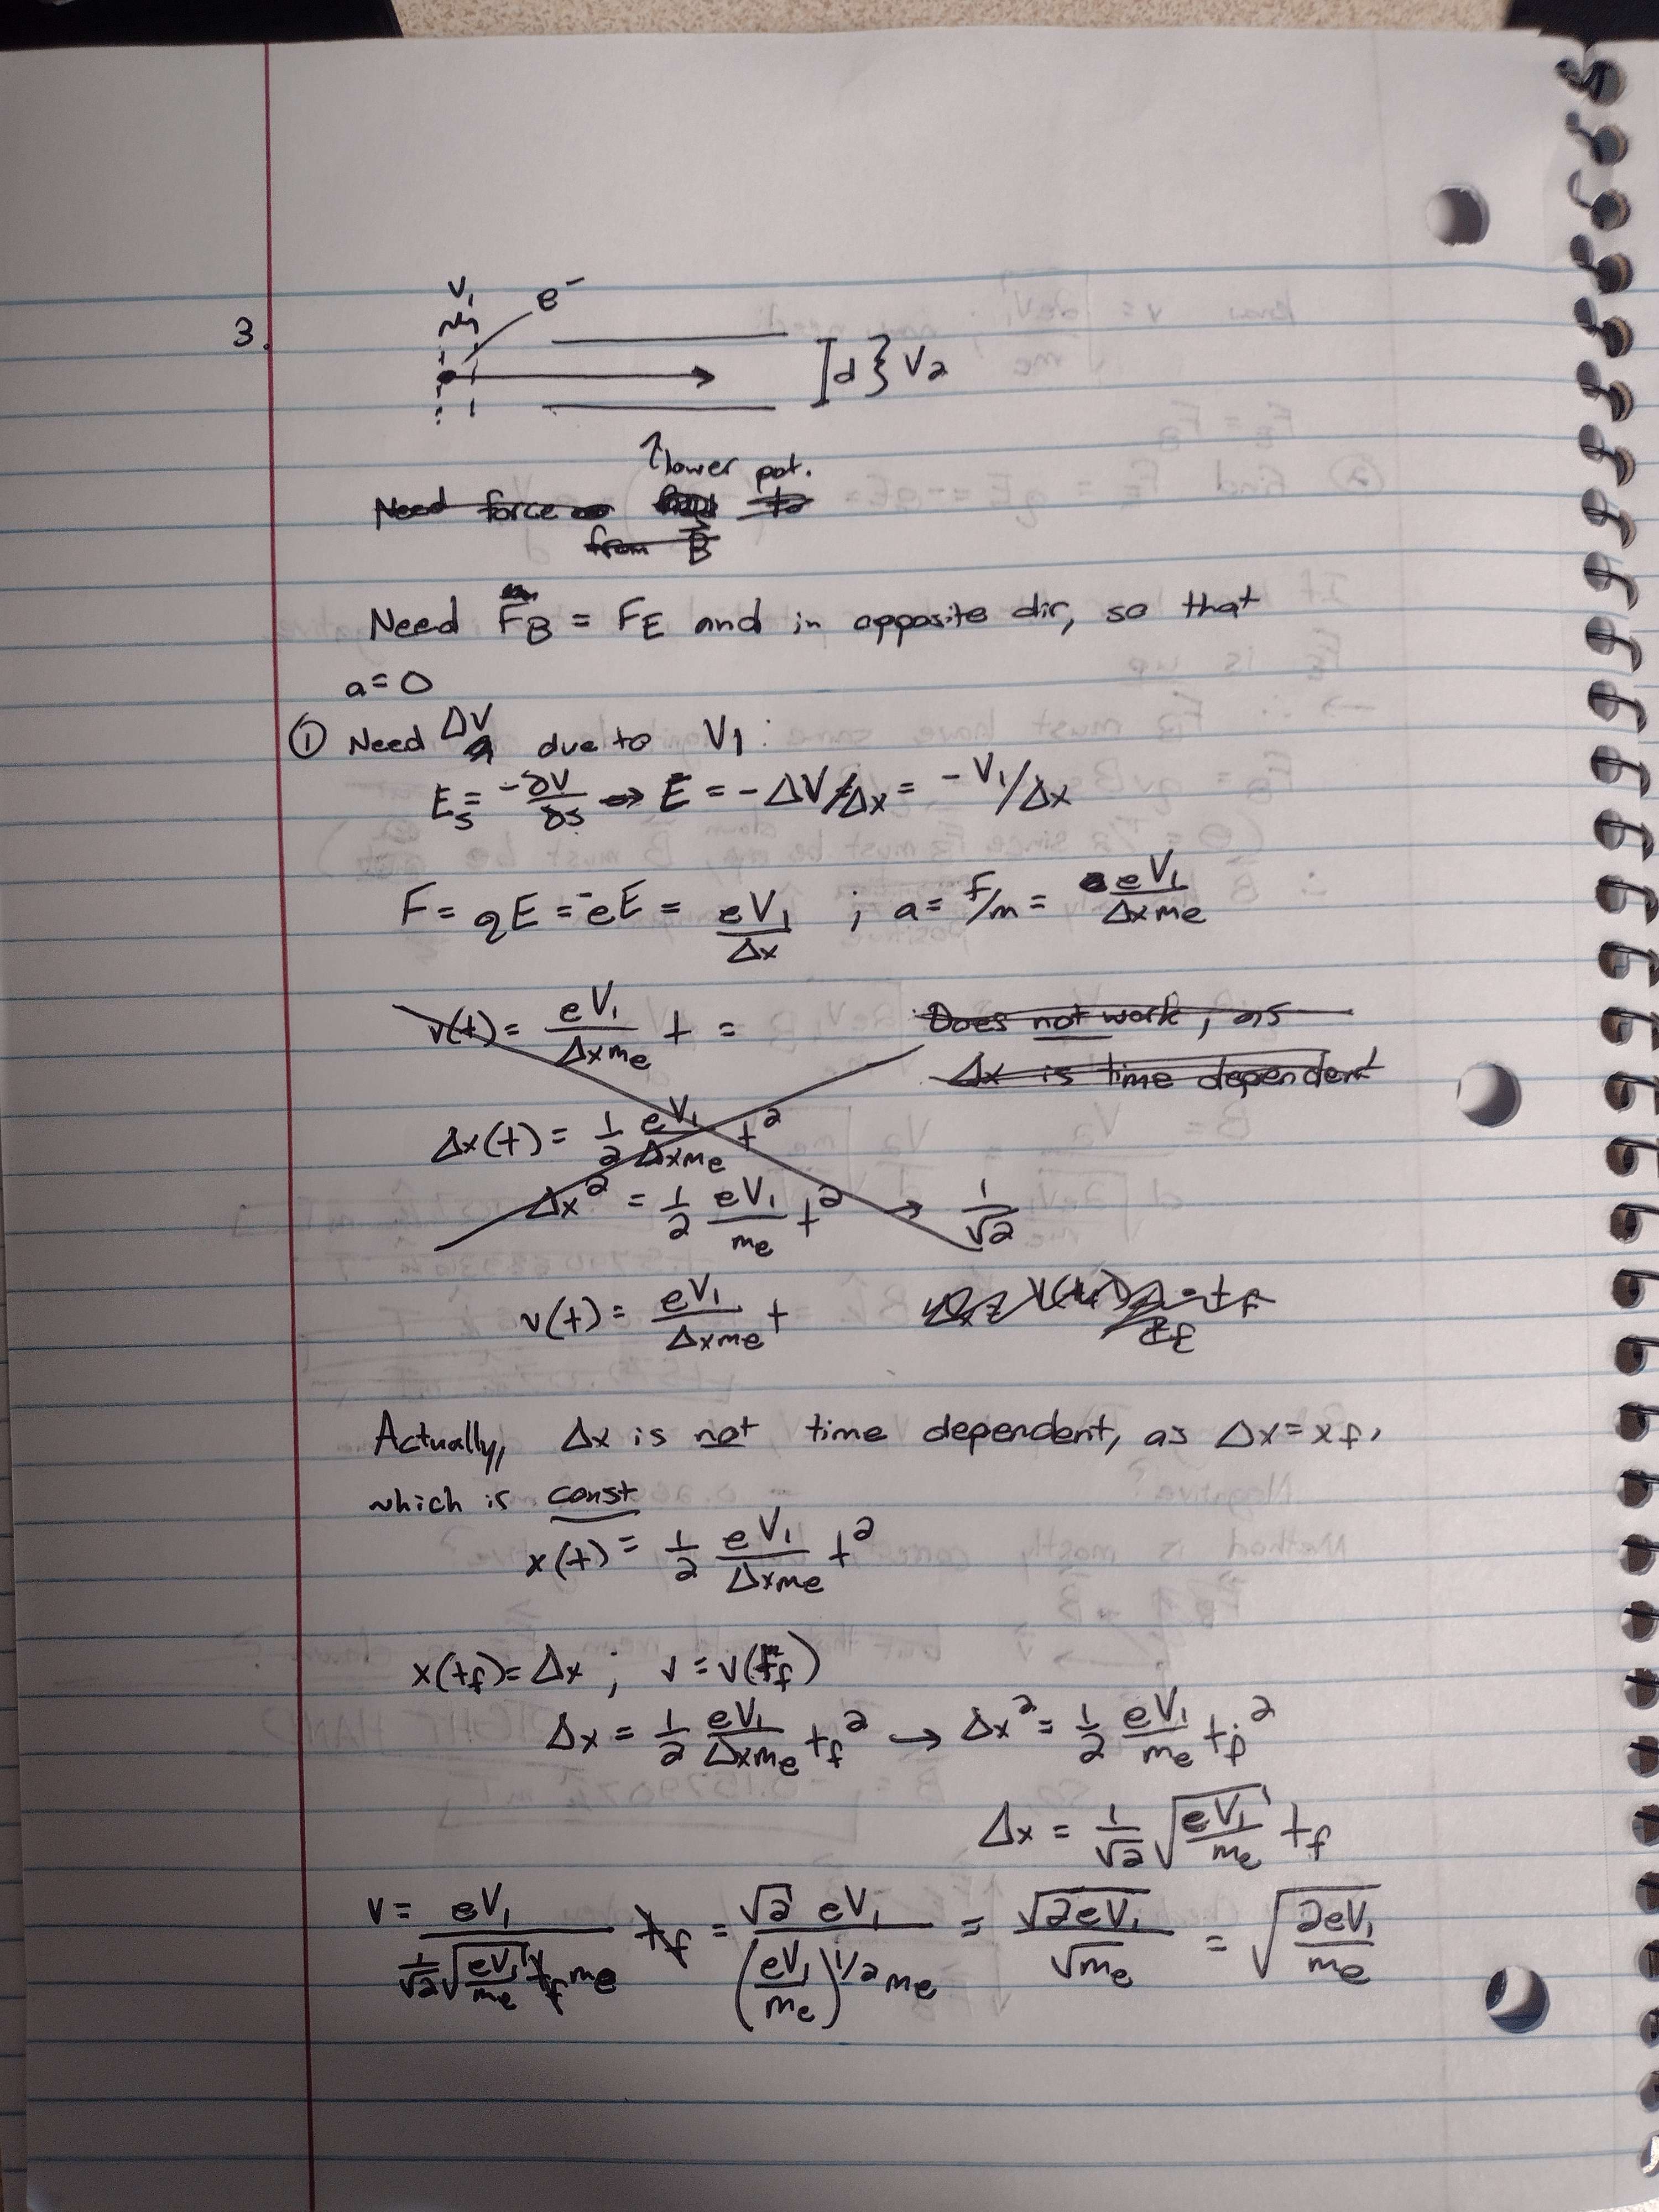 3.
V₁
e⁻
d } V₂
↑ lower pot.
Need force
from B⃗
Need F_B = F_E and in opposite dir, so that
a = 0
① Need ΔV due to V₁:
E_s = -∂V/∂s → E = -ΔV/Δx = -V₁/Δx
F = qE = -eE = eV₁/Δx ; a = F/m = eV₁/Δxmₑ
v(t) = eV₁/Δxmₑ t =
Does not work, as
Δx is time dependent
Δx(t) = 1/2 eV₁/Δxmₑ t²
Δx² = 1/2 eV₁/mₑ t² → 1/√2
v(t) = eV₁/Δxmₑ t
Actually, Δx is not time dependent, as Δx = x_f,
which is const
x(t) = 1/2 eV₁/Δxmₑ t²
x(t_f) = Δx ; v = v(t_f)
Δx = 1/2 eV₁/Δxmₑ t_f² → Δx² = 1/2 eV₁/mₑ t_f²
Δx = 1/√2 √(eV₁/mₑ) t_f
v = eV₁/(1/√2 √(eV₁/mₑ) t_f mₑ) t_f = √2 eV₁/((eV₁/mₑ)^1/2 mₑ) = √(2eV₁)/√mₑ = √(2eV₁/mₑ)